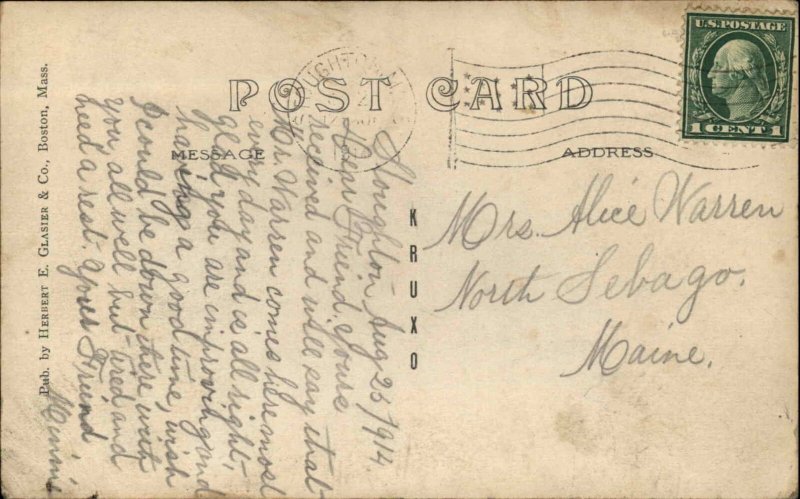 POST CARD
U.S. POSTAGE
1 CENT 1
MESSAGE
ADDRESS
KRUXO
Pub. by HERBERT E. GLASIER & Co., Boston, Mass.
Stoughton Aug 25 1914.
Dear Friend. Yours
received and will say that
Mr Warren comes here most
every day and is all right.
glad you are improving and
having a good time, wish
I could be down there with
you, all well but tired and
need a rest. Your Friend
Minnie
Mrs. Alice Warren
North Sebago.
Maine.